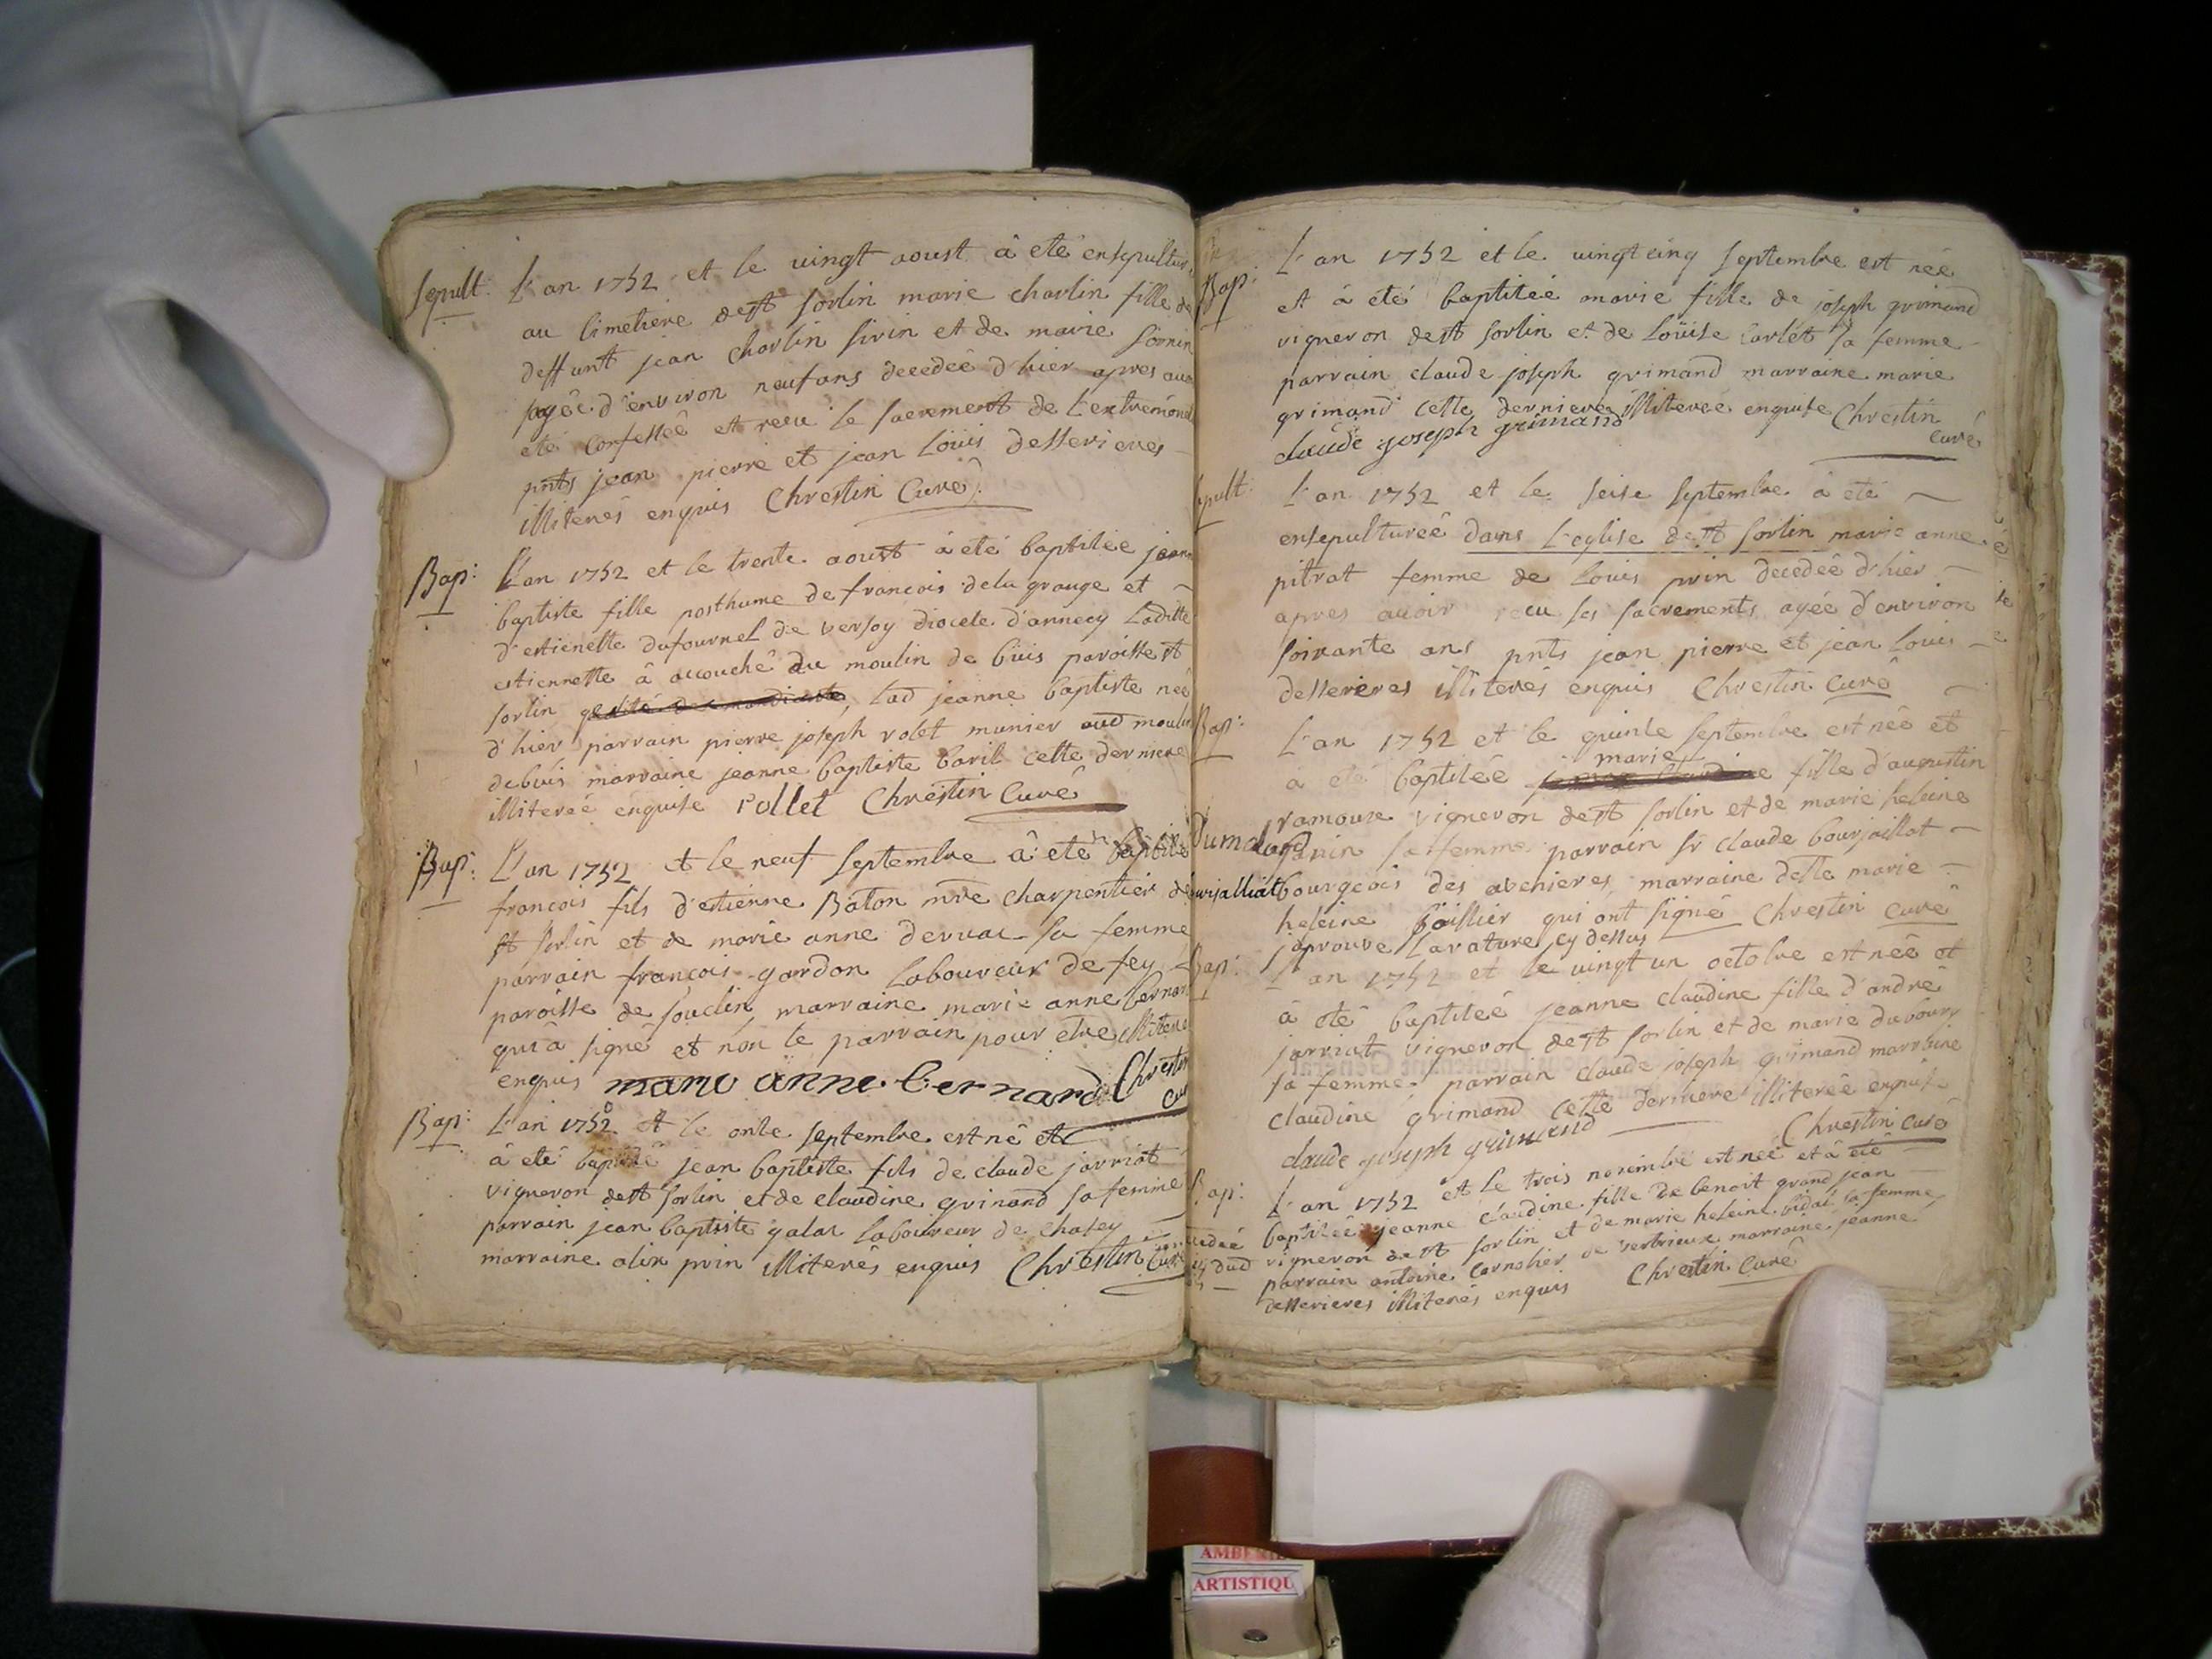 Sepult. L'an 1752 et le vingt aoust à eté ensepultur
au Cimetiere de st sorlin marie charlin fille de
deffunt jean Charlin sirin et de marie
agée d'environ neuf ans decedeé d'hier apres avoir
eté Confesseé et receu le sacrement de l'extremonct
pnts jean pierre et jean Loüis desserieres
illiterés enquis Chrestin Curé
Bap: L'an 1752 et le trente aoust à eté baptiseé jeanne
baptiste fille posthume de francois dela grange et
d'estienette dufournel de versoy diocese d'annecy Laditte
estiennette à accouché du moulin de büis paroisse st
sorlin lad jeanne baptiste neé
d'hier parrain pierre joseph rolet munier aud moulin
debuis marraine jeanne baptiste baril cette derniere
illitereé enquise rollet Chrestin Curé
Bap: L'an 1752 et le neuf septembre à eté baptisé
francois fils d'estienne Baton mre charpentier de
st sorlin et de marie anne dervac sa femme
parrain francois gardon laboureur de fey
paroisse de souclin, marraine marie anne bernard
qui à signé et non le parrain pour etre illiteré
enquis marie anne bernard Chrestin
cur
Bap: L'an 1752 et le onse septembre est né et
à eté baptisé jean baptiste fils de claude jarriat
vigneron de st sorlin et de claudine grimand sa femme
parrain jean baptiste galas laboureur de chasey
marraine alix prin illiterés enquis Chrestin Curé
Bap: L'an 1752 et le vingt cinq septembre est neé
et à eté baptiseé marie fille de joseph grimand
vigneron de st sorlin et de Loüise Carlet sa femme
parrain claude joseph grimand marraine marie
grimand cette derniere illitereé enquise Chrestin
claude joseph grimand curé
sepult: L'an 1752 et le seise septembre à eté
ensepultureé dans L'eglise de st sorlin marie anne
pitrat femme de Louis prin decedeé d'hier
apres avoir recu ses sacrements ageé d'environ
soixante ans pnts jean pierre et jean Louis
desserieres illiterés enquis Chrestin Curé
Bap: L'an 1752 et le quinse septembre est neé et
marie
à eté baptiseé fille d'augustin
ramouse vigneron de st sorlin et de marie heleine
sa femme parrain sr claude bourjaillat
bourgeois des avenieres, marraine delle marie
heleine qui ont signé Chrestin Curé
japrouve la rature cy dessus
Bap: L'an 1752 et le vingt un octobre est neé et
à eté baptiseé jeanne claudine fille d'andré
jarriat vigneron de st sorlin et de marie dubourg
sa femme parrain claude joseph grimand marraine
claudine grimand cette derniere illitereé enquise
claude joseph grimand Chrestin Curé
Bap: L'an 1752 et le trois novembre est neé et à eté
baptiseé jeanne claudine fille de benoit grand jean
vigneron de st sorlin et de marie heleine bidal sa femme
parrain antoine Cornolier de vertrieux marraine jeanne
desserieres illiterés enquis Chrestin Curé
ARTISTIQU